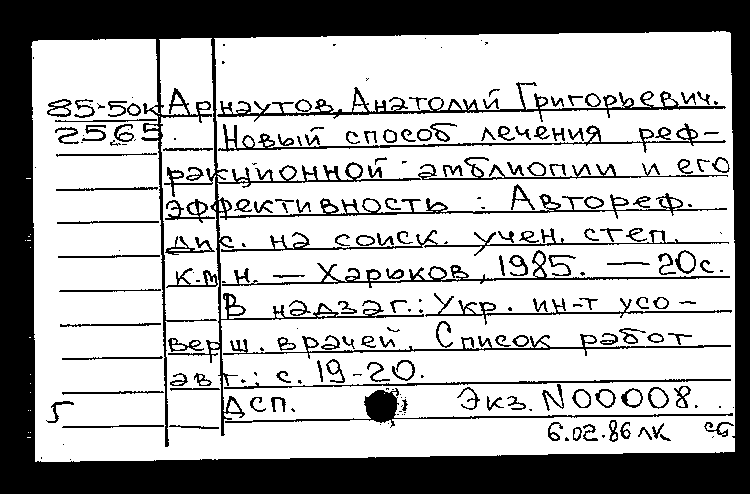 85-5ок Арнаутов, Анатолий Григорьевич.
2565. Новый способ лечения реф-
ракционной амблиопии и его
эффективность : Автореф.
дис. на соиск. учен. степ.
к.м.н. — Харьков, 1985. — 20с.
В надзаг.: Укр. ин-т усо-
верш. врачей. Список работ
авт.: с. 19-20.
5 ДСП. Экз. N00008.
6.02.86 ЛК сб.